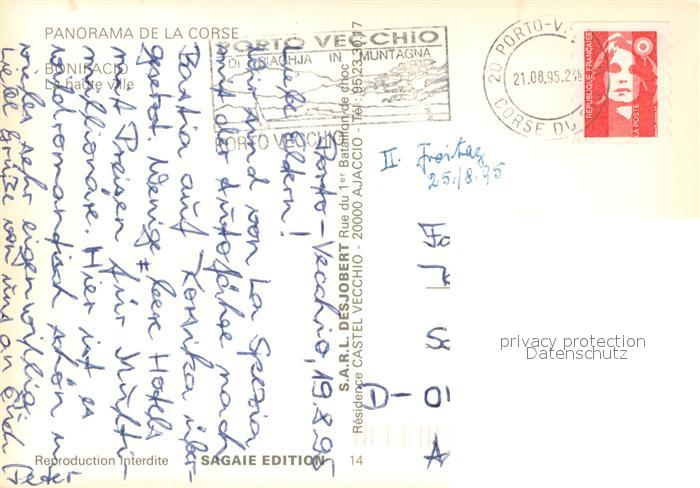 PANORAMA DE LA CORSE
BONIFACIO
La haute ville
PORTO VECCHIO
DI PIAGHJA IN MUNTAGNA
PORTO VECCHIO
20 PORTO-V.
21.08.95.21h
CORSE DU
RÉPUBLIQUE FRANÇAISE
LA POSTE
II. Freitag
25./8.95
Porto-Vecchio, 19.8.95
Liebe Eltern!
Wir sind von La Spezia
mit der Autofähre nach
Bastia auf Korsika über-
gesetzt. Wenige leere Hotels
mit Preisen für Multi-
millionäre. Hier ist es
wildromantisch schön u.
vieles sehr eigenwillig.
Liebe Grüße von uns an Euch Peter
S.A.R.L. DESJOBERT Rue du 1er Bataillon de choc
Résidence CASTEL VECCHIO - 20000 AJACCIO - Tél. 95.23.30.17
D-01
A
privacy protection
Datenschutz
Reproduction interdite
SAGAIE EDITION
14